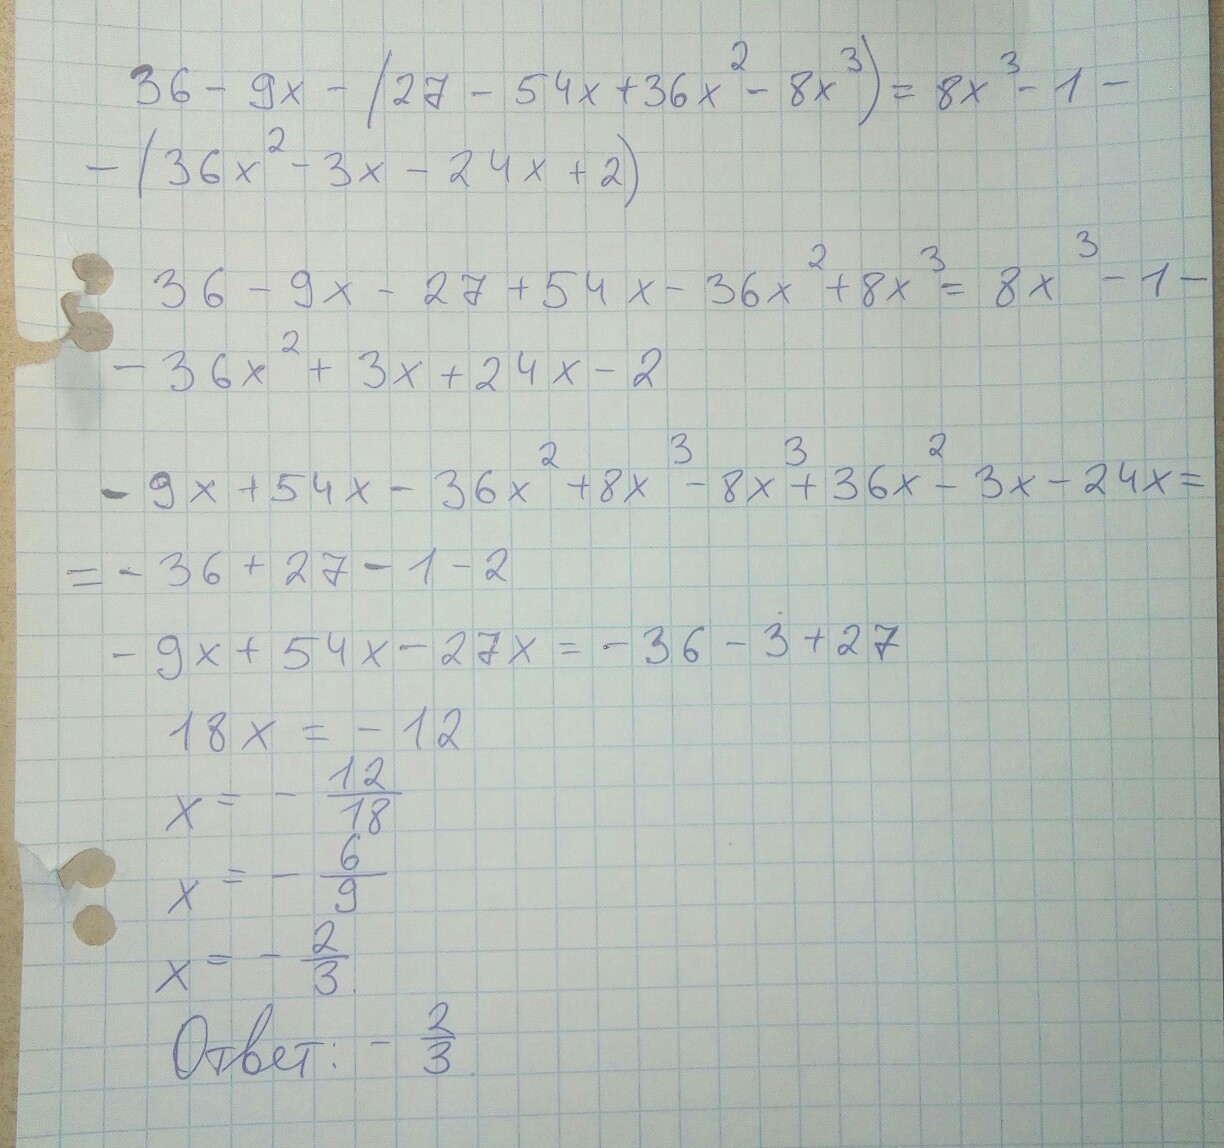 36 - 9x - (27 - 54x + 36x² - 8x³) = 8x³ - 1 -
- (36x² - 3x - 24x + 2)
36 - 9x - 27 + 54x - 36x² + 8x³ = 8x³ - 1 -
- 36x² + 3x + 24x - 2
- 9x + 54x - 36x² + 8x³ - 8x³ + 36x² - 3x - 24x =
= - 36 + 27 - 1 - 2
- 9x + 54x - 27x = - 36 - 3 + 27
18x = - 12
x = - 12/18
x = - 6/9
x = - 2/3
Ответ: - 2/3